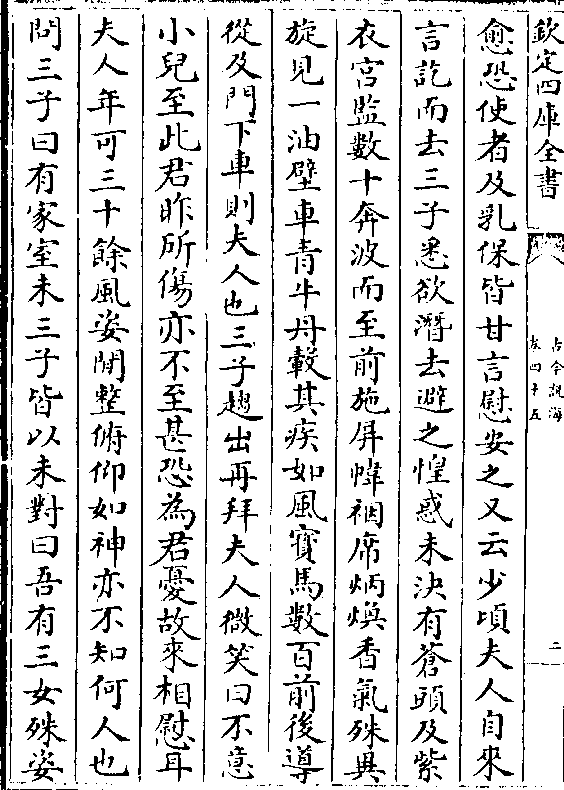 欽定四庫全書
古今說海
卷四十五
二
愈恐使者及乳保皆甘言慰安之又云少頃夫人自來
言訖而去三子悉欲潛去避之惶惑未決有蒼頭及紫
衣宮監數十奔波而至前施屏幃裀席炳煥香氣殊異
旋見一油壁車青牛丹轂其疾如風寳馬數百前後導
從及門下車則夫人也三子趨出再拜夫人微笑曰不意
小兒至此君昨所傷亦不至甚恐為君憂故來相慰耳
夫人年可三十餘風姿閒整俯仰如神亦不知何人也
問三子曰有家室未三子皆以未對曰吾有三女殊姿